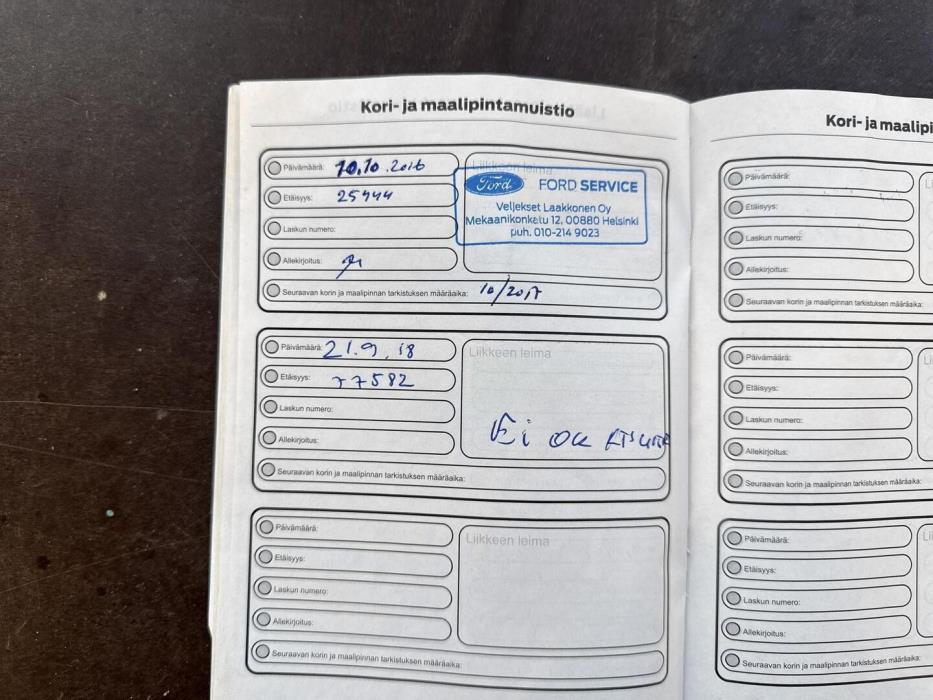 Kori- ja maalipintamuistio
Päivämäärä: 10.10.2016
Etäisyys: 25444
Laskun numero:
Allekirjoitus:
Liikkeen leima
Ford FORD SERVICE
Veljekset Laakkonen Oy
Mekaanikonkatu 12, 00880 Helsinki
puh. 010-214 9023
Seuraavan korin ja maalipinnan tarkistuksen määräaika: 10/2017
Päivämäärä: 21.9.18
Etäisyys: 77582
Laskun numero:
Allekirjoitus:
Liikkeen leima
Ei ole
Seuraavan korin ja maalipinnan tarkistuksen määräaika:
Päivämäärä:
Etäisyys:
Laskun numero:
Allekirjoitus:
Liikkeen leima
Seuraavan korin ja maalipinnan tarkistuksen määräaika:
Kori- ja maalipi
Päivämäärä:
Etäisyys:
Laskun numero:
Allekirjoitus:
Li
Seuraavan korin ja maalipinnan tarkistuksen määräaika:
Päivämäärä:
Etäisyys:
Laskun numero:
Allekirjoitus:
Li
Seuraavan korin ja maalipinnan tarkistuksen määräaika:
Päivämäärä:
Etäisyys:
Laskun numero:
Allekirjoitus:
Lii
Seuraavan korin ja maalipinnan tarkistuksen määräaika: